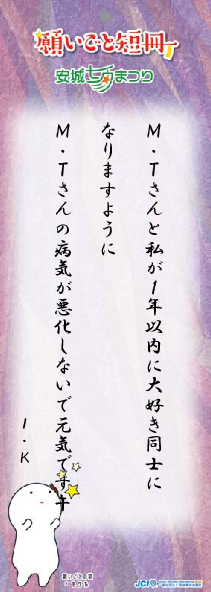 願いごと短冊
安城七夕まつり
M・Tさんと私が1年以内に大好き同士に
なりますように
M・Tさんの病気が悪化しないで元気です
I・K
願いごと短冊
JCI